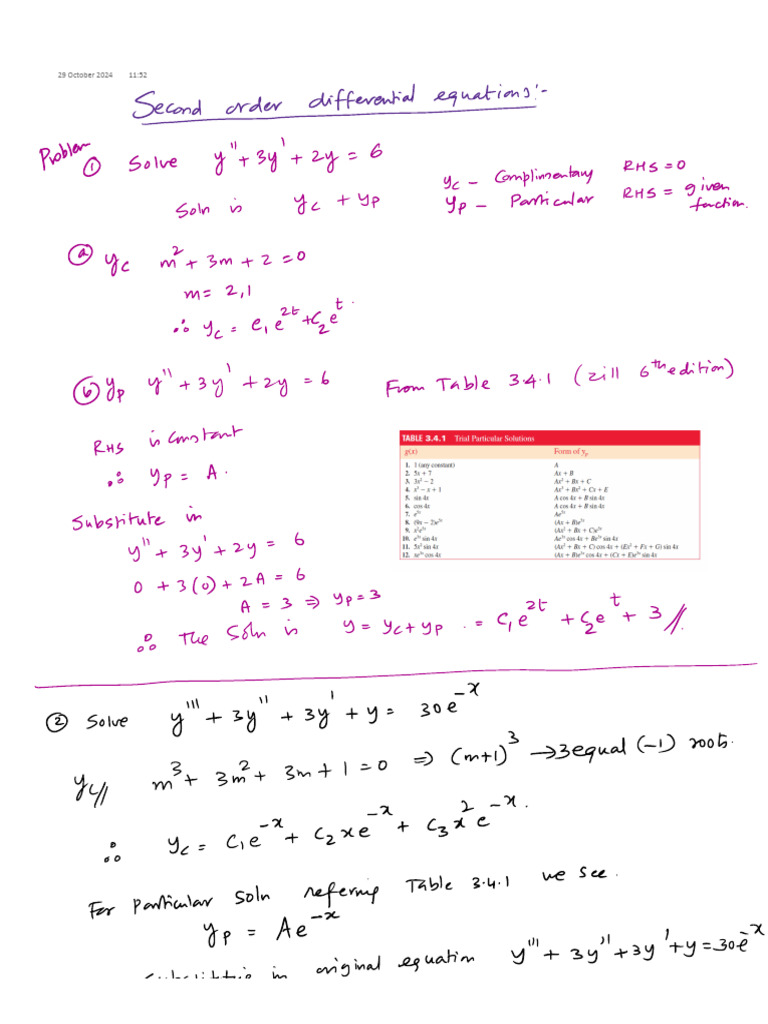 29 October 2024 11:52
Second order differential equations:-
Problem
① Solve y'' + 3y' + 2y = 6
Soln is y_c + y_p
y_c – Complimentary RHS = 0
y_p – Particular RHS = given function.
ⓐ y_c m² + 3m + 2 = 0
m = 2,1
∴ y_c = c₁e^{2t} + c₂e^t.
ⓑ y_p y'' + 3y' + 2y = 6
From Table 3.4.1 (zill 6th edition)
RHS is constant
∴ y_p = A.
TABLE 3.4.1 Trial Particular Solutions
g(x) Form of y_p
1. 1 (any constant) A
2. 5x + 7 Ax + B
3. 3x² − 2 Ax² + Bx + C
4. x³ − x + 1 Ax³ + Bx² + Cx + E
5. sin 4x A cos 4x + B sin 4x
6. cos 4x A cos 4x + B sin 4x
7. e^{5x} Ae^{5x}
8. (9x − 2)e^{5x} (Ax + B)e^{5x}
9. x²e^{5x} (Ax² + Bx + C)e^{5x}
10. e^{3x} sin 4x Ae^{3x} cos 4x + Be^{3x} sin 4x
11. 5x² sin 4x (Ax² + Bx + C) cos 4x + (Ex² + Fx + G) sin 4x
12. xe^{3x} cos 4x (Ax + B)e^{3x} cos 4x + (Cx + E)e^{3x} sin 4x
Substitute in
y'' + 3y' + 2y = 6
0 + 3(0) + 2A = 6
A = 3 ⇒ y_p = 3
∴ The Soln is y = y_c + y_p. = c₁e^{2t} + c₂e^t + 3 //.
② Solve y''' + 3y'' + 3y' + y = 30e^{-x}
y_c// m³ + 3m² + 3m + 1 = 0 ⇒ (m+1)³ → 3 equal (-1) roots.
∴ y_c = c₁e^{-x} + c₂xe^{-x} + c₃x²e^{-x}.
For particular soln referring Table 3.4.1 we see.
y_p = Ae^{-x}
in original equation y''' + 3y'' + 3y' + y = 30e^{-x}